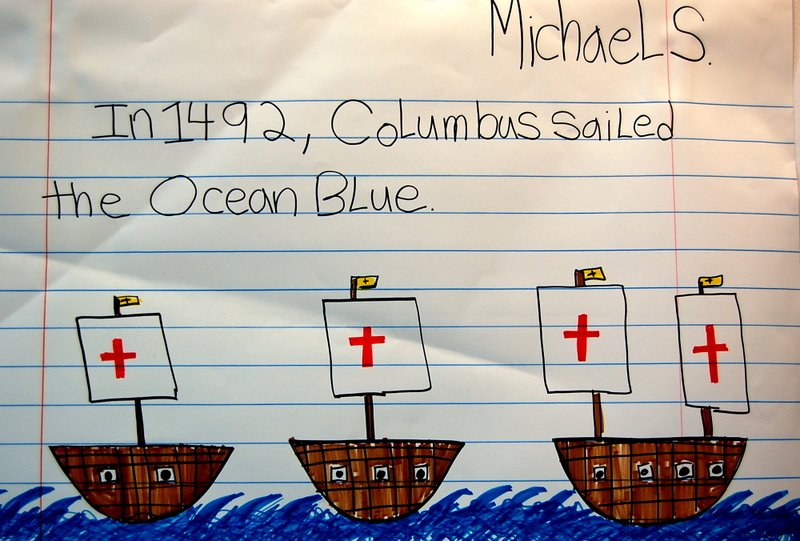 Michael S.
In 1492, Columbus sailed
the Ocean Blue.